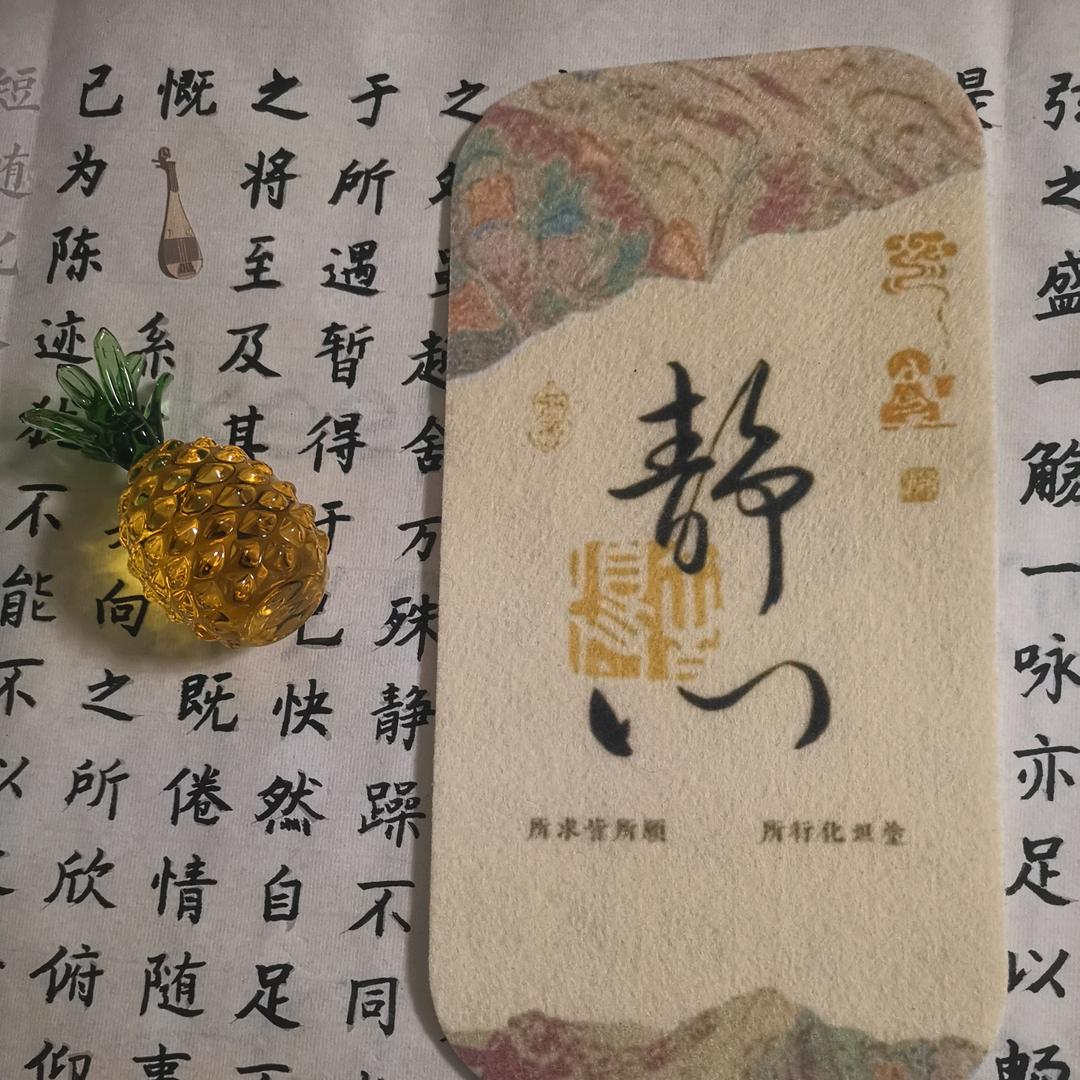 弦之盛一觞一咏亦足以畅
静心
所求皆所願
所行化坦塗
之外虽趣舍万殊静躁不同
于所遇暂得于己快然自足不
之将至及其既倦情随事
慨系向之所欣俯仰
已为陈迹犹不能不以
短随化